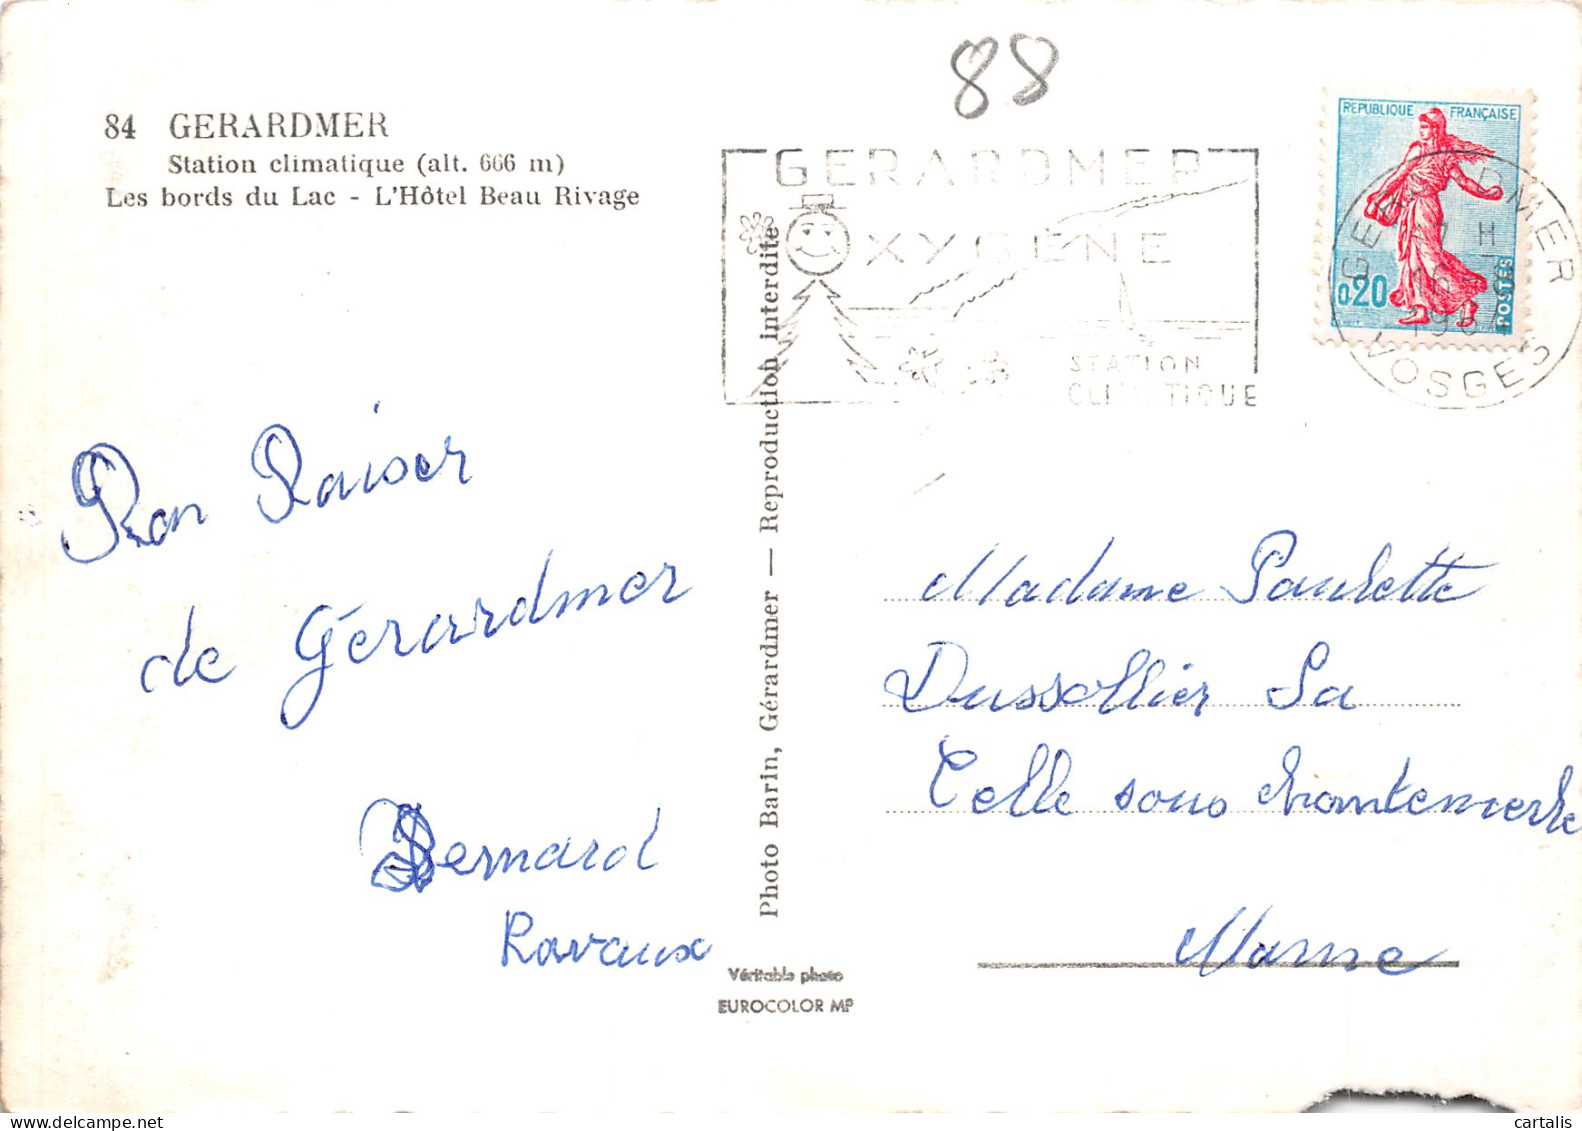 88
84 GERARDMER
Station climatique (alt. 666 m)
Les bords du Lac - L'Hôtel Beau Rivage
GERARDMER
OXYGENE
STATION
CLIMATIQUE
REPUBLIQUE FRANÇAISE
0,20
POSTES
GERARDMER
VOSGES
Bon Baiser
de Gérardmer
Bernard
Ravaux
Photo Barin, Gérardmer — Reproduction Interdite
Véritable photo
EUROCOLOR MP
Madame Paulette
Dussollier La
Celle sous Chantemerle
Marne
cartalis